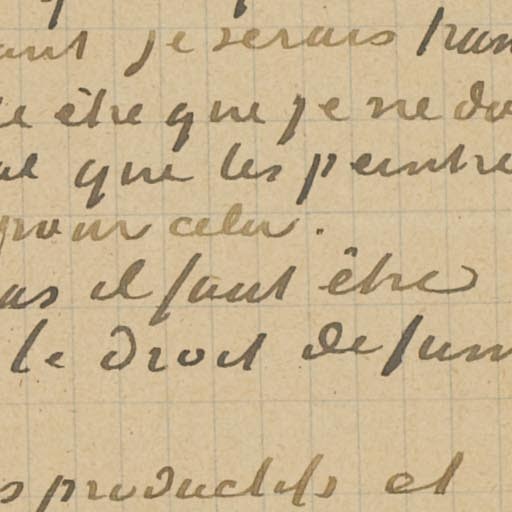 je serais
être que je ne
que les peintre
pour celui.
il faut être
le droit de
productifs et